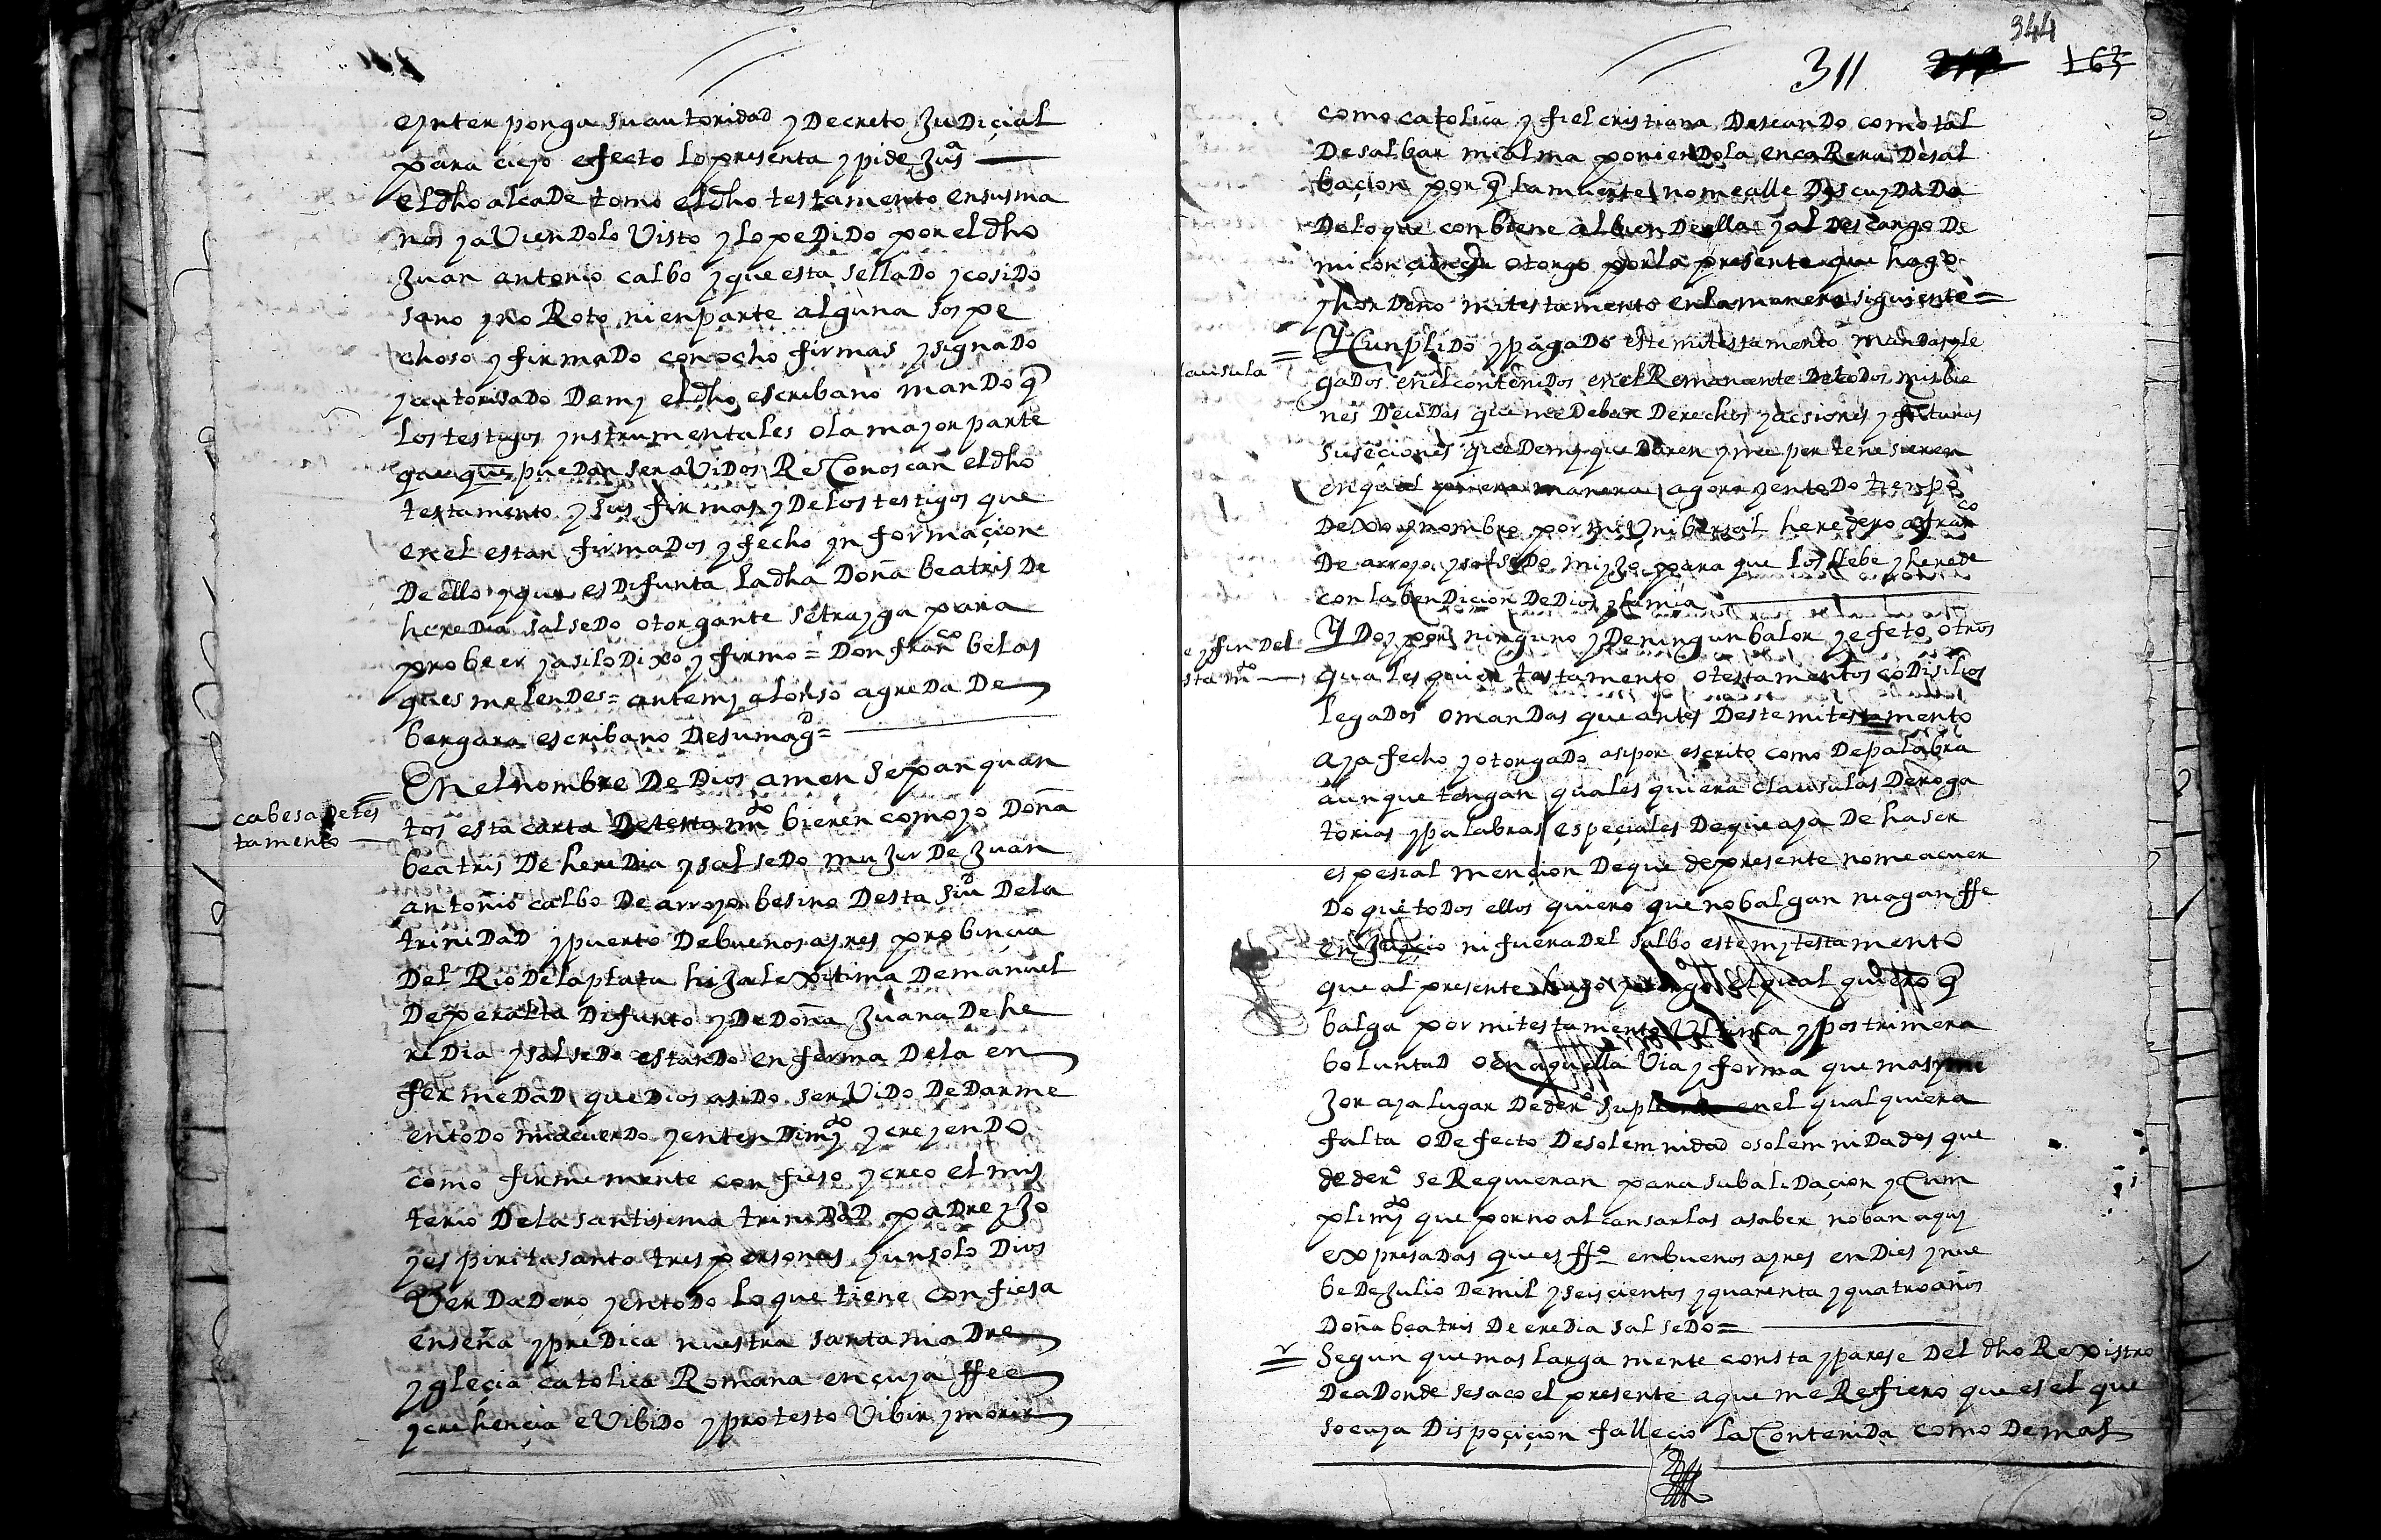 eynterponga su autoridad y Decreto JuDiçial
para cuyo efecto lo presenta y pide Jusª
el dho alcaDe tomo el dho testamento en susma
nos y aVienDolo Visto y lo peDiDo por el dho
Juan antonio calbo y que esta sellaDo y cosiDo
sano y no Roto ni en parte alguna sospe
choso y firmaDo con ocho firmas y signaDo
y autorisaDo Demy el dho escribano manDo q
los testigos ynstrumentales o la mayor parte
que que pueDan ser aViDos ReConoscan el dho
testamento y sus firmas y De los testigos que
en el estan firmaDos y fecho ynformaçion
De ello y que es Difunta la dha Doña beatris De
hereDia salseDo otorgante se trayga para
probeer y asi lo Dixo y firmo = Don franco belas
ques melenDes = antemy alonso agreDa De
bergara escribano De su magd =
cabesa De tes
tamento
En el nombre De Dios amen sepan quan
tos esta carta De testamto bieren como yo Doña
beatris De hereDia y salseDo muJer De Juan
antonio calbo De arroyo besino Desta siud De la
triniDaD y puerto De buenos ayres probincia
Del Rio De la plata hiJa lexitima De manuel
De peralta Difunto y De Doña Juana De he
reDia y salseDo estanDo enferma De la en
fermeDaD que Dios a siDo serViDo De Darme
en toDo mi acuerDo y entenDimyto y creyenDo
como firmemente confieso y creo el mis
terio De la santisima triniDaD paDre yJo
y espiritu santo tres personas y un solo Dios
VerDaDero y en toDo lo que tiene confiesa
enseña y preDica nuestra santa maDre
ygleçia catolica Romana en cuya ffee
y crehençia e ViviDo y protesto Vibir y morir
344
311
163
como catolica y fiel cristiana DeseanDo como tal
De salbar mi alma ponienDola en caRera De sal
baçion por q la muerte no me alle DescuyDaDa
De lo que conbiene al bien De ella y al Descargo De
mi conçiençia otorgo por la presente que hago
y horDeno mi testamento en la manera siguiente =
lausula
Y CunpliDo y pagaDo este mi testamento manDas y le
gaDos en el conteniDos en el Remanente De toDos mis bie
nes DeuDas que me Deban Derechos y acsiones y futuras
suseçiones que De my queDaren y me pertenesieren
en qual quiera manera agora y en toDo tienpo
Dexo y nombro por mi Unibersal hereDero a franco
De arroyo y salseDo mi yJo para que los llebe y hereDe
con la benDicion De Dios y la mia
e y fin Del
stamto
Y Doy por ninguno y De ningun balor y efeto otros
quales quier testamento o testamentos coDisilios
legaDos o manDas que antes Deste mi testamento
aya fecho y otorgaDo asi por escrito como De palabra
aunque tengan quales quiera clausulas Deroga
torias y palabras espeçiales De que aya De haser
espesial mençion De que de presente no me acuer
Do que toDos ellos quiero que no balgan ni agan ffe
en Juyçio ni fuera Del salbo este my testamento
que al presente hago y otorgo el qual quiero q
balga por mi testamento Ultima y postrimera
boluntaD o en aquella Via y forma que mas y me
Jor aya lugar De dero supliendo en el qual quiera
falta o Defecto De solemnidad o solemniDades que
de dero se Requieran para su baliDaçion y Cum
plimyto que por no alcansarlas a saber no ban aquy
expresaDas que es ffo en buenos ayres en Dies y nue
be De Julio De mil y seiscientos y quarenta y quatro años
Doña beatris De ereDia salseDo =
Segun que mas larga mente consta y parese Del dho Rexistro
De aDonde se saco el presente a que me Refiero que es el que
so cuya Dispoçiçion falleçio la ConteniDa como De mas